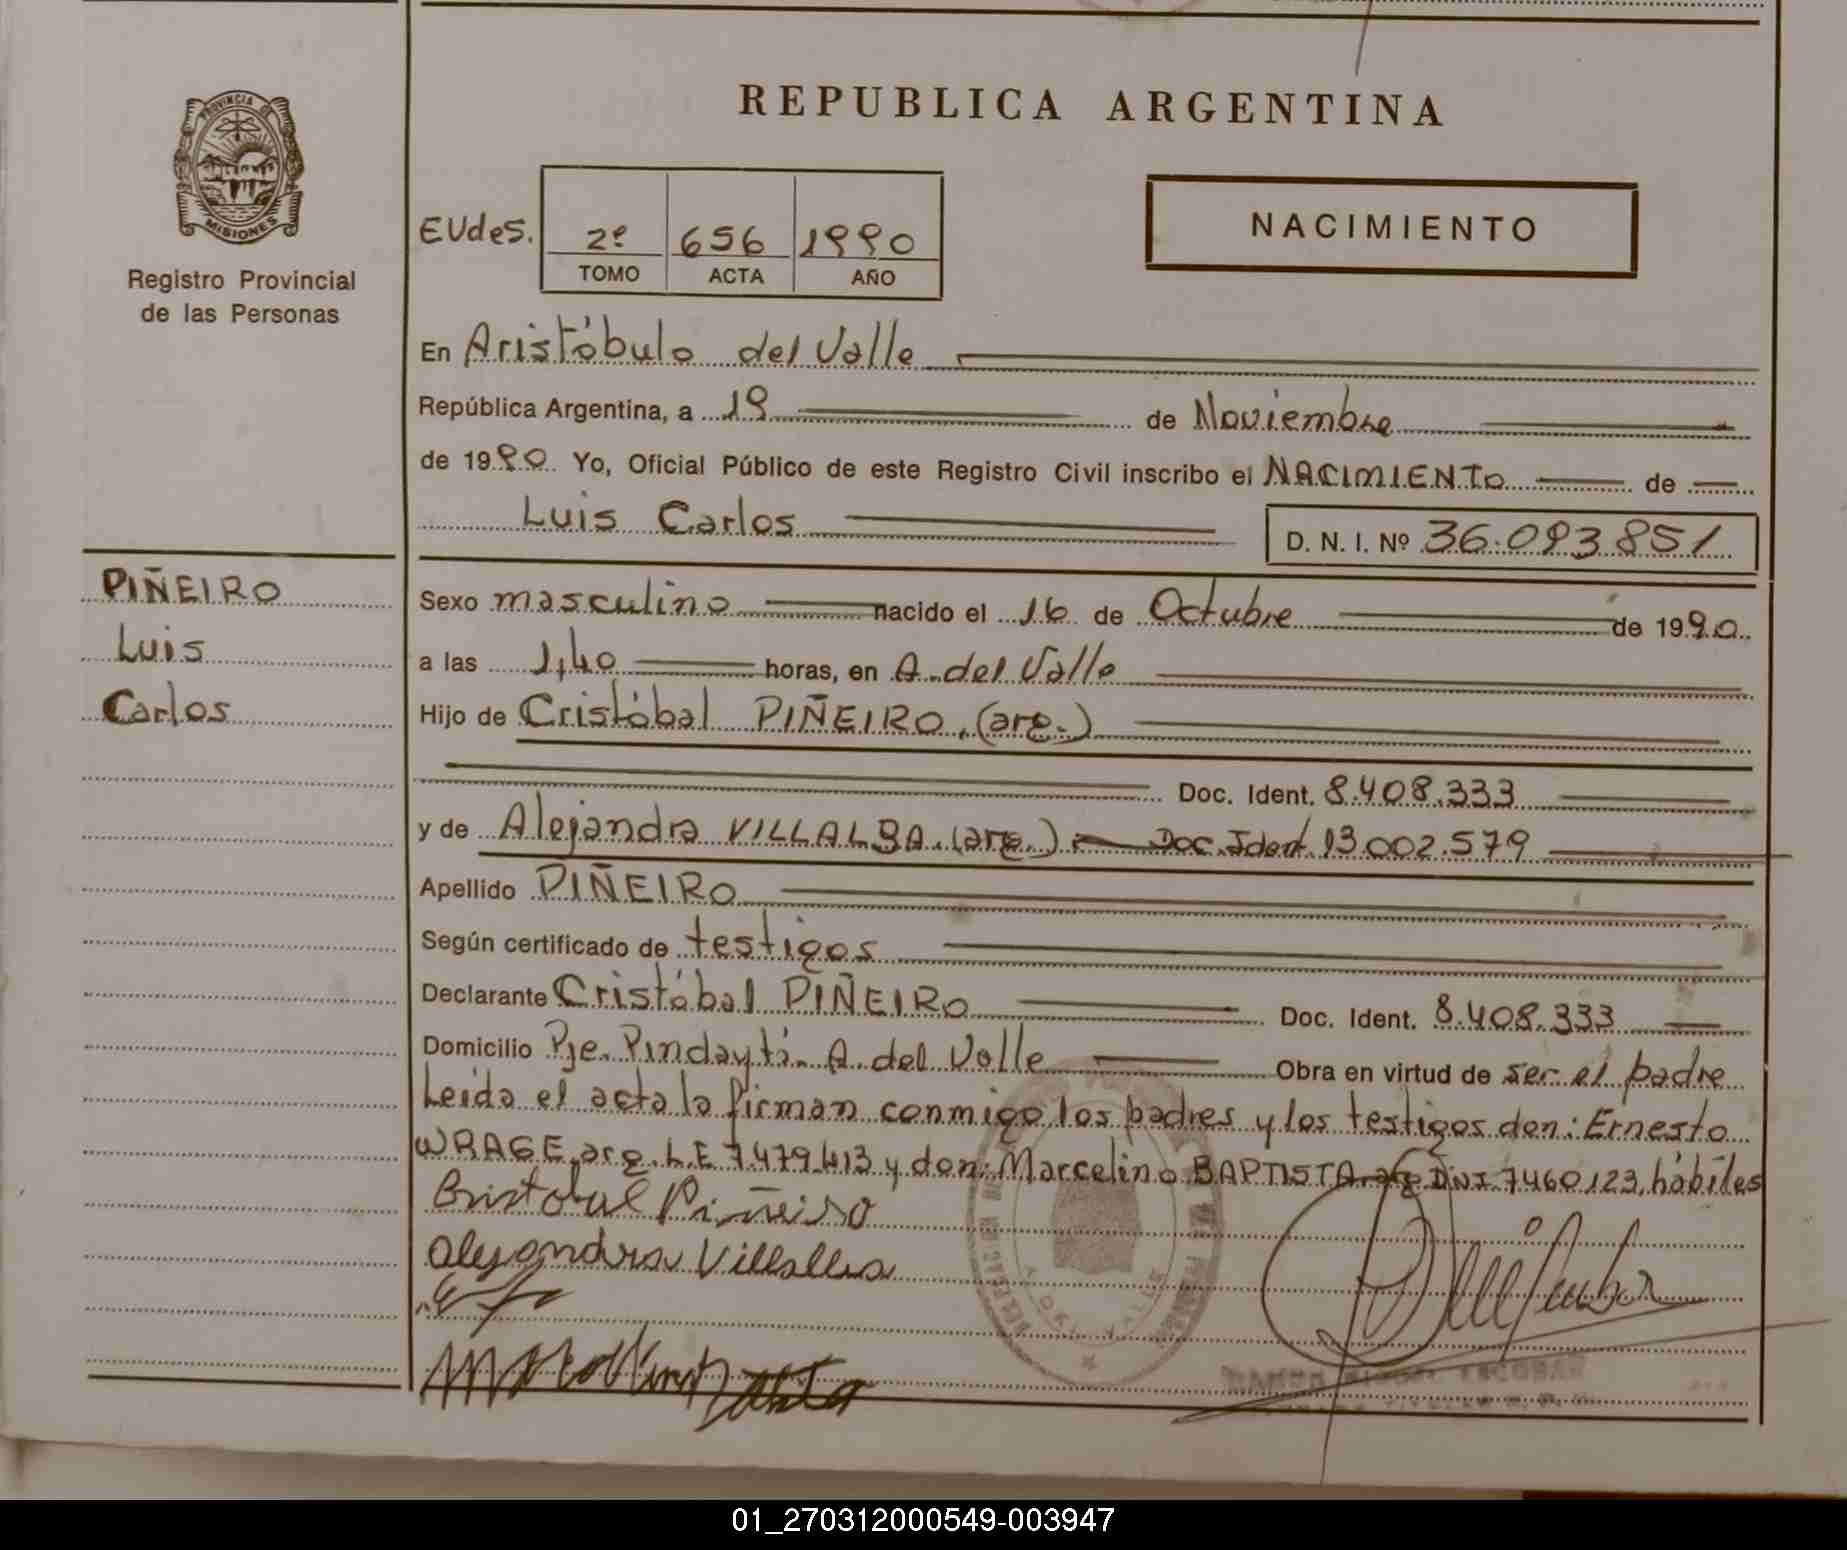 PROVINCIA DE
MISIONES
Registro Provincial
de las Personas
REPUBLICA ARGENTINA
EVdes.
2º 656 1990
TOMO ACTA AÑO
NACIMIENTO
En Aristóbulo del Valle
República Argentina, a 19 de Noviembre
de 1990 Yo, Oficial Público de este Registro Civil inscribo el NACIMIENTO de
Luis Carlos
D. N. I. Nº 36.093.851
PIÑEIRO
Luis
Carlos
Sexo masculino nacido el 16 de Octubre de 1990.
a las 1,40 horas, en A. del Valle
Hijo de Cristóbal PIÑEIRO, (arg.)
Doc. Ident. 8.408.333
y de Alejandra VILLALBA. (arg.) Doc. Ident. 13.002.579
Apellido PIÑEIRO
Según certificado de testigos
Declarante Cristóbal PIÑEIRO Doc. Ident. 8.408.333
Domicilio Pje. Pindaytí- A. del Valle Obra en virtud de ser el padre
Leída el acta la firman conmigo los padres y los testigos don: Ernesto
WRAGE, arg. L.E 7.479.413 y don: Marcelino BAPTISTA arg DNI 7460.123, hábiles
Cristobal Piñeiro
Alejandra Villalba
01_270312000549-003947